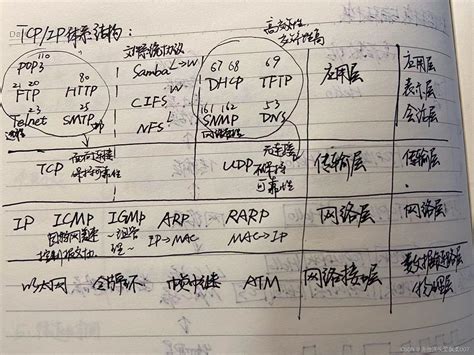 TCP/IP体系结构:
110
POP3
21 80
FTP HTTP
23 25
Telnet SMTP
远程
文件系统协议
Samba L→W
CIFS W
NFS L
高效性
实时性高
67 68 69
DHCP TFTP
161 162 53
SNMP DNS
网络管理
应用层
应用层
表示层
会话层
TCP 面向连接
保持可靠性
UDP 无连接
不保持
可靠性
传输层
传输层
IP ICMP IGMP ARP RARP 网络层 网络层
因特网
控制报文协
~组管
理~
IP→MAC MAC→IP
以太网 令牌环 帧中继 ATM 网络接口层 数据链路层
物理层